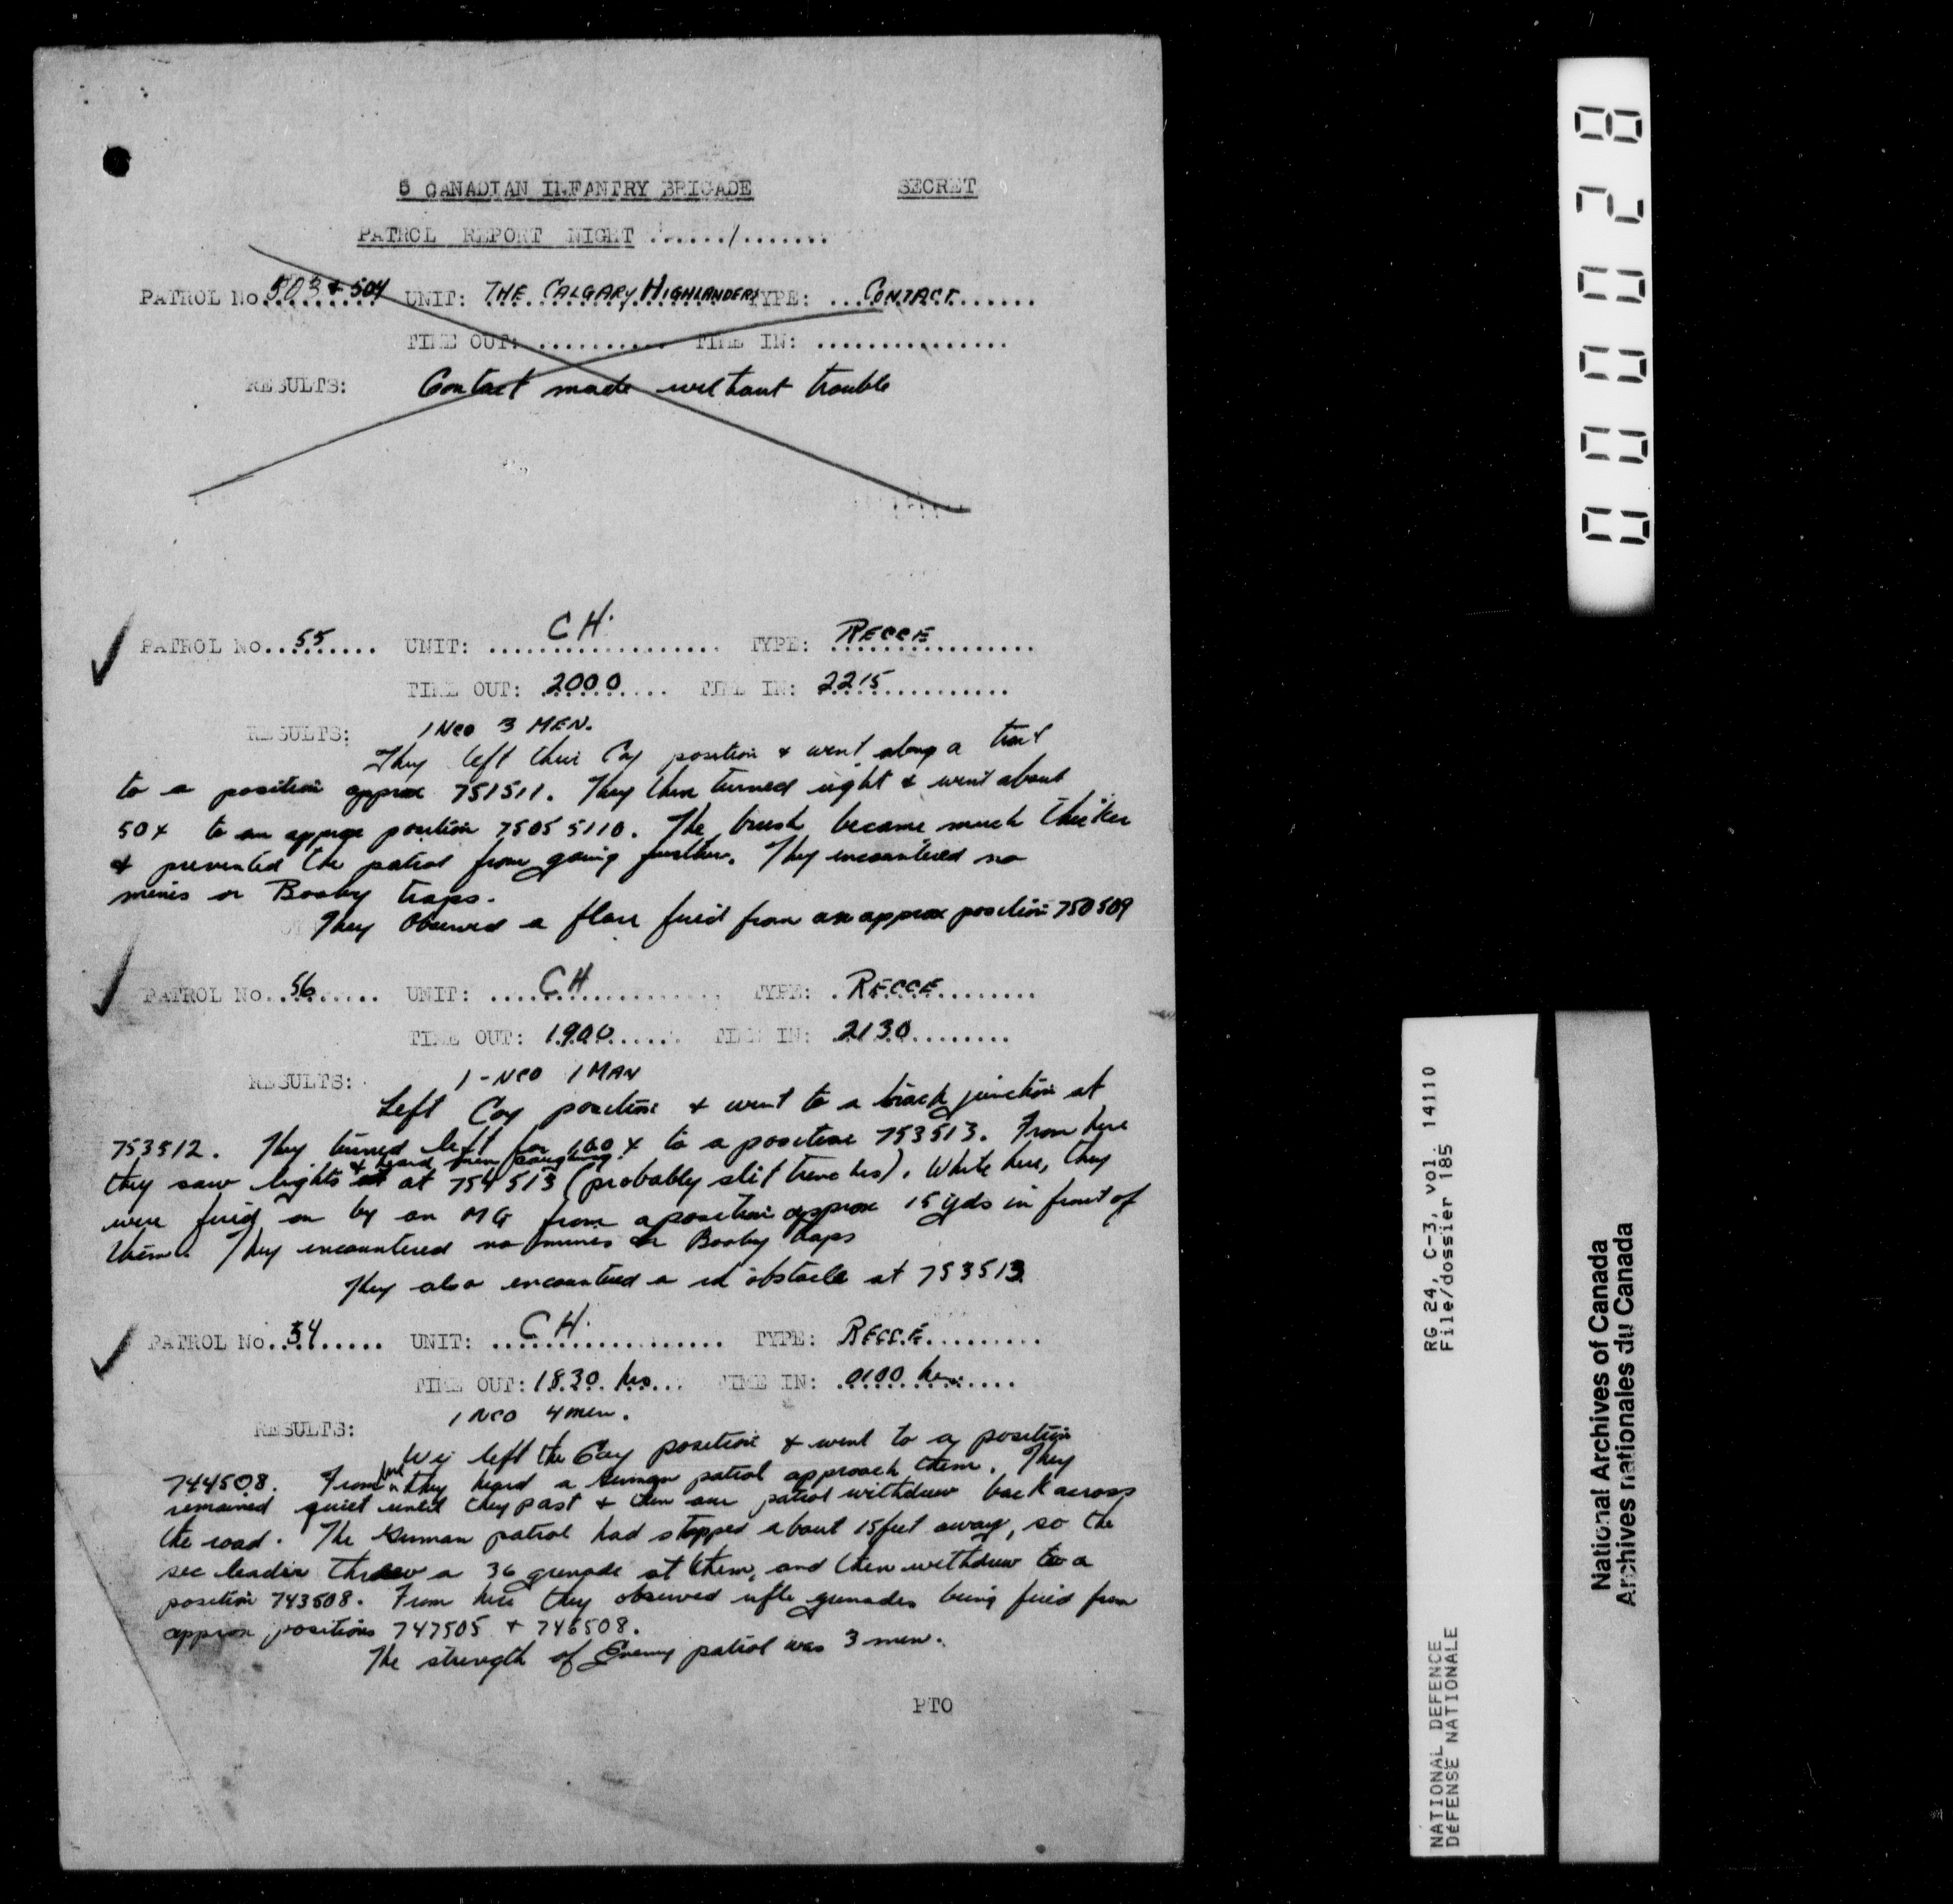 5 CANADIAN INFANTRY BRIGADE SECRET
PATROL REPORT NIGHT ....../.......
PATROL No. 503 & 504 UNIT: THE CALGARY HIGHLANDERS TYPE: ...CONTACT......
TIME OUT: .......... TIME IN: ...............
RESULTS: Contact made without trouble
PATROL No. 55 UNIT: CH. TYPE: RECCE
TIME OUT: 2000 TIME IN: 2215
RESULTS: 1 NCO 3 MEN.
They left their Coy position & went along a trail
to a position approx 751511. They then turned right & went about
50x to an approx position 75055110. The brush became much thicker
& prevented the patrol from going further. They encountered no
mines or Booby traps.
They observed a flare fired from an approx position 750509
PATROL No. 56 UNIT: CH TYPE: RECCE
TIME OUT: 1900 TIME IN: 2130
RESULTS: 1 - NCO 1 MAN
Left Coy position & went to a track junction at
753512. They turned left for 100x to a position 753513. From here
& heard men coughing
they saw lights at 754513 (probably slit trenches). While here, they
were fired on by an MG from a position approx 15 yds in front of
them. They encountered no mines or Booby traps
They also encountered a obstacle at 753513
PATROL No. 54 UNIT: CH. TYPE: RECCE
TIME OUT: 1830 hrs TIME IN: 0100 hrs.
RESULTS: 1 NCO 4 men.
left the Coy position & went to a position
744508. From here they heard a German patrol approach them. They
remained quiet until they past & then our patrol withdrew back across
the road. The German patrol had stopped about 15 feet away, so the
sec leader threw a 36 grenade at them, and then withdrew to a
position 743508. From here they observed rifle grenades being fired from
approx positions 747505 & 746508.
The strength of Enemy patrol was 3 men.
PTO
000028
RG 24, C-3, vol. 14110
File/dossier 185
NATIONAL DEFENCE
DÉFENSE NATIONALE
National Archives of Canada
Archives nationales du Canada